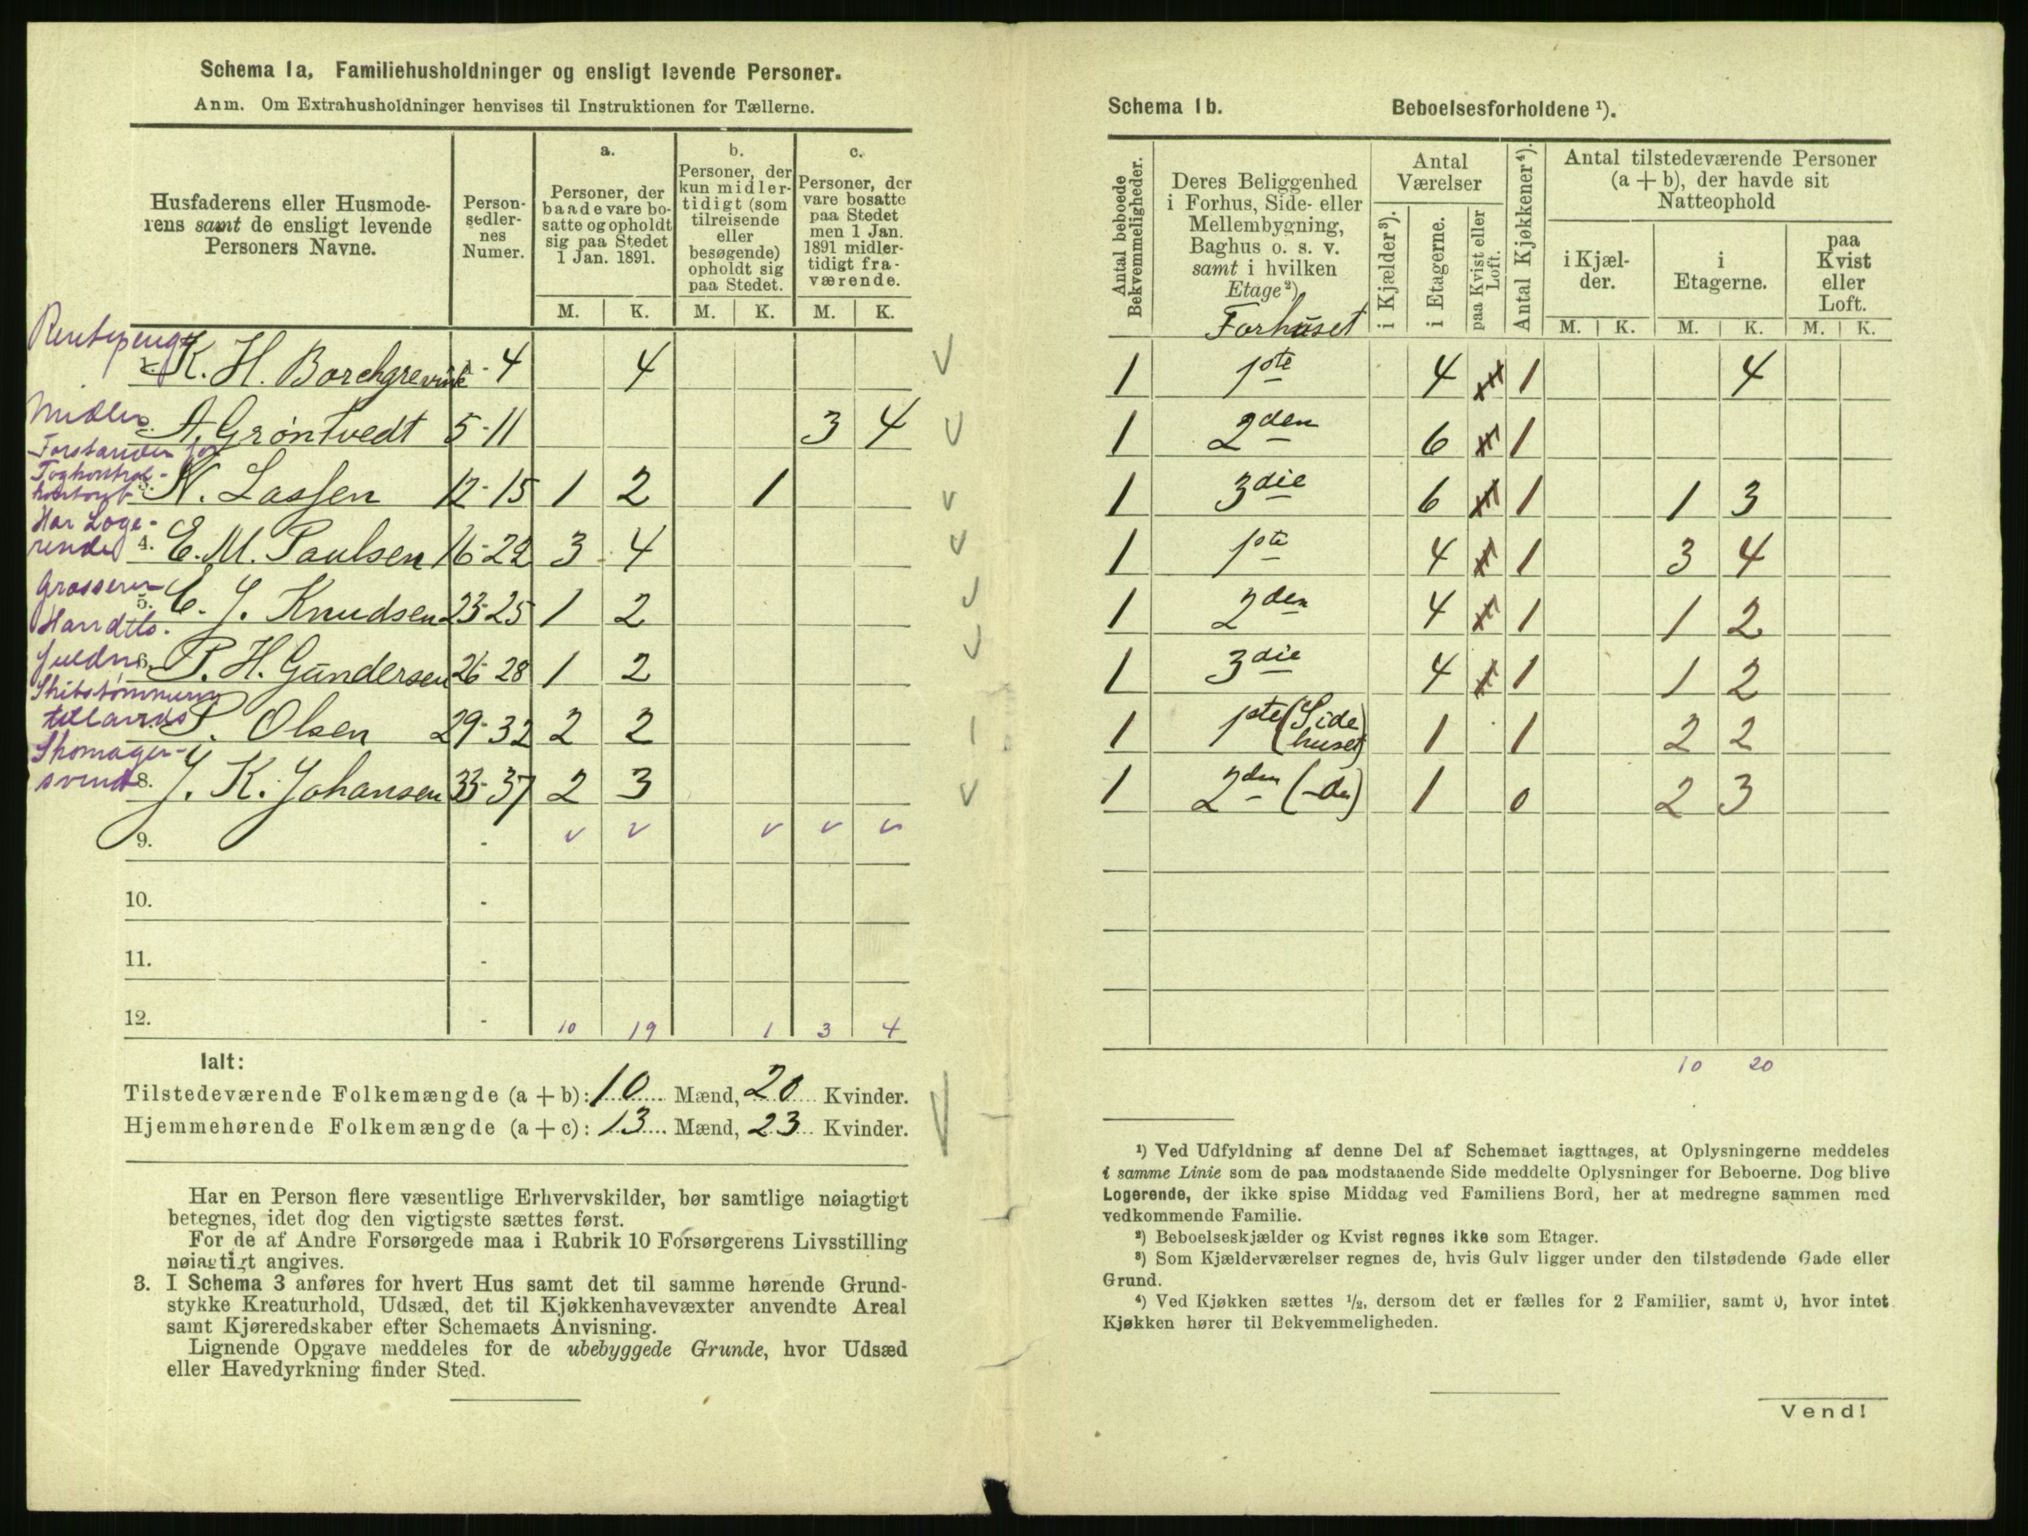 Schema 1a, Familiehusholdninger og ensligt levende Personer.
Anm. Om Extrahusholdninger henvises til Instruktionen for Tællerne.
Husfaderens eller Husmode-
rens samt de ensligt levende
Personers Navne.
Person-
sedler-
nes
Numer.
a.
Personer, der
baade vare bo-
satte og opholdt
sig paa Stedet
1 Jan. 1891.
b.
Personer, der
kun midler-
tidigt (som
tilreisende
eller
besøgende)
opholdt sig
paa Stedet.
c.
Personer, der
vare bosatte
paa Stedet
men 1 Jan.
1891 midler-
tidigt fra-
værende.
M. K. M. K. M. K.
Rentepenge
1. K. H. Borchgrevink 1-4 4
Midler
2. A. Grøntvedt 5-11 3 4
Forstander for
Togkontrol-
kontoret
3. N. Lassen 12-15 1 2 1
Har Loge-
rende
4. E. M. Paulsen 16-22 3 4
Grosserer
5. C. J. Knudsen 23-25 1 2
Handels-
fuldm.
6. P. H. Gundersen 26-28 1 2
Skibstømmerm.
tillands
P. Olsen 29-32 2 2
Skomager-
svend
8. J. K. Johansen 33-37 2 3
9. -
10. -
11. -
12. - 10 19 1 3 4
Ialt:
Tilstedeværende Folkemængde (a + b): 10 Mænd, 20 Kvinder.
Hjemmehørende Folkemængde (a + c): 13 Mænd, 23 Kvinder.
Har en Person flere væsentlige Erhvervskilder, bør samtlige nøiagtigt
betegnes, idet dog den vigtigste sættes først.
For de af Andre Forsørgede maa i Rubrik 10 Forsørgerens Livsstilling
nøiagtigt angives.
3. I Schema 3 anføres for hvert Hus samt det til samme hørende Grund-
stykke Kreaturhold, Udsæd, det til Kjøkkenhavevæxter anvendte Areal
samt Kjøreredskaber efter Schemaets Anvisning.
Lignende Opgave meddeles for de ubebyggede Grunde, hvor Udsæd
eller Havedyrkning finder Sted.
Schema 1b. Beboelsesforholdene ¹).
Antal beboede
Bekvemmeligheder.
Deres Beliggenhed
i Forhus, Side- eller
Mellembygning,
Baghus o. s. v.
samt i hvilken
Etage ²)
Antal
Værelser
i Kjælder ³).
i Etagerne.
paa Kvist eller
Loft.
Antal Kjøkkener ⁴).
Antal tilstedeværende Personer
(a + b), der havde sit
Natteophold
i Kjæl-
der.
i
Etagerne.
paa
Kvist
eller
Loft.
M. K. M. K. M. K.
Forhuset
1 1ste 4 1 4
1 2den 6 1
1 3die 6 1 1 3
1 1ste 4 1 3 4
1 2den 4 1 1 2
1 3die 4 1 1 2
1 1ste (Side
huset) 1 1 2 2
1 2den (-do) 1 0 2 3
10 20
¹) Ved Udfyldning af denne Del af Schemaet iagttages, at Oplysningerne meddeles
i samme Linie som de paa modstaaende Side meddelte Oplysninger for Beboerne. Dog blive
Logerende, der ikke spise Middag ved Familiens Bord, her at medregne sammen med
vedkommende Familie.
²) Beboelseskjælder og Kvist regnes ikke som Etager.
³) Som Kjælderværelser regnes de, hvis Gulv ligger under den tilstødende Gade eller
Grund.
⁴) Ved Kjøkken sættes ½, dersom det er fælles for 2 Familier, samt 0, hvor intet
Kjøkken hører til Bekvemmeligheden.
Vend!